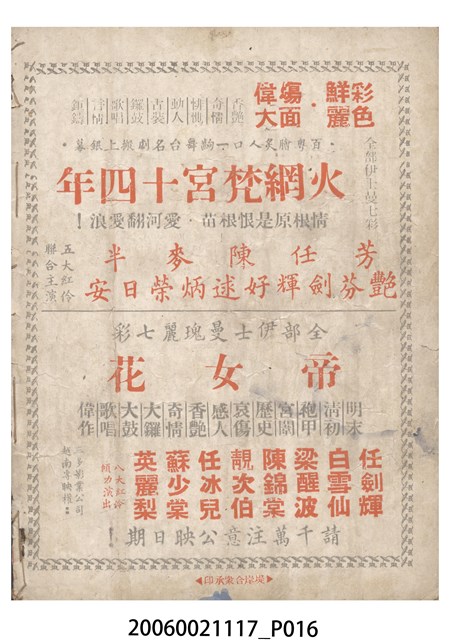 彩色
鮮麗
・
塲面
偉大
全部伊士曼七彩
香艷
動人
古裝
鑼鼓
歌唱
・百粵膾炙人口一齣舞台名劇搬上銀幕・
火網梵宮十四年
情根原是恨根苗・愛河翻愛浪!
芳艷芬
任劍輝
陳好逑
麥炳榮
半日安
五大紅伶
聯合主演
全部伊士曼瑰麗七彩
帝女花
明末
清初
袍甲
宮闈
歷史
哀傷
感人
香艷
奇情
大鑼
大鼓
歌唱
偉作
任劍輝
白雪仙
梁醒波
陳錦棠
靚次伯
任冰兒
蘇少棠
英麗梨
八大紅伶
傾力演出
影業公司
請千萬注意公映日期!
◀堤岸合眾承印▶
20060021117_P016